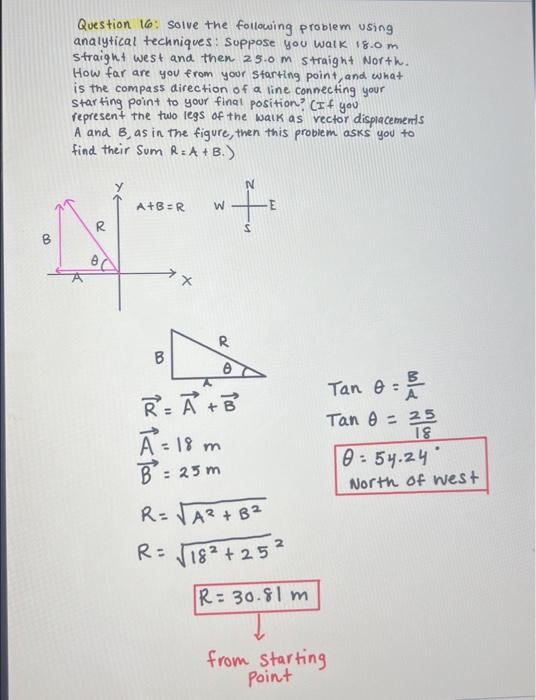 Question 16: Solve the following problem using
analytical techniques: Suppose you walk 18.0 m
straight west and then 25.0 m straight North.
How far are you from your starting point, and what
is the compass direction of a line connecting your
starting point to your final position? (If you
represent the two legs of the walk as vector displacements
A and B, as in the figure, then this problem asks you to
find their sum R = A + B.)
Y
A+B=R
N
W
E
S
R
B
θ
A
X
R
B
θ
A
R⃗ = A⃗ + B⃗
A⃗ = 18 m
B⃗ = 25 m
R = √A² + B²
R = √18² + 25²
R = 30.81 m
from starting
point
Tan θ = B/A
Tan θ = 25/18
θ = 54.24°
North of west